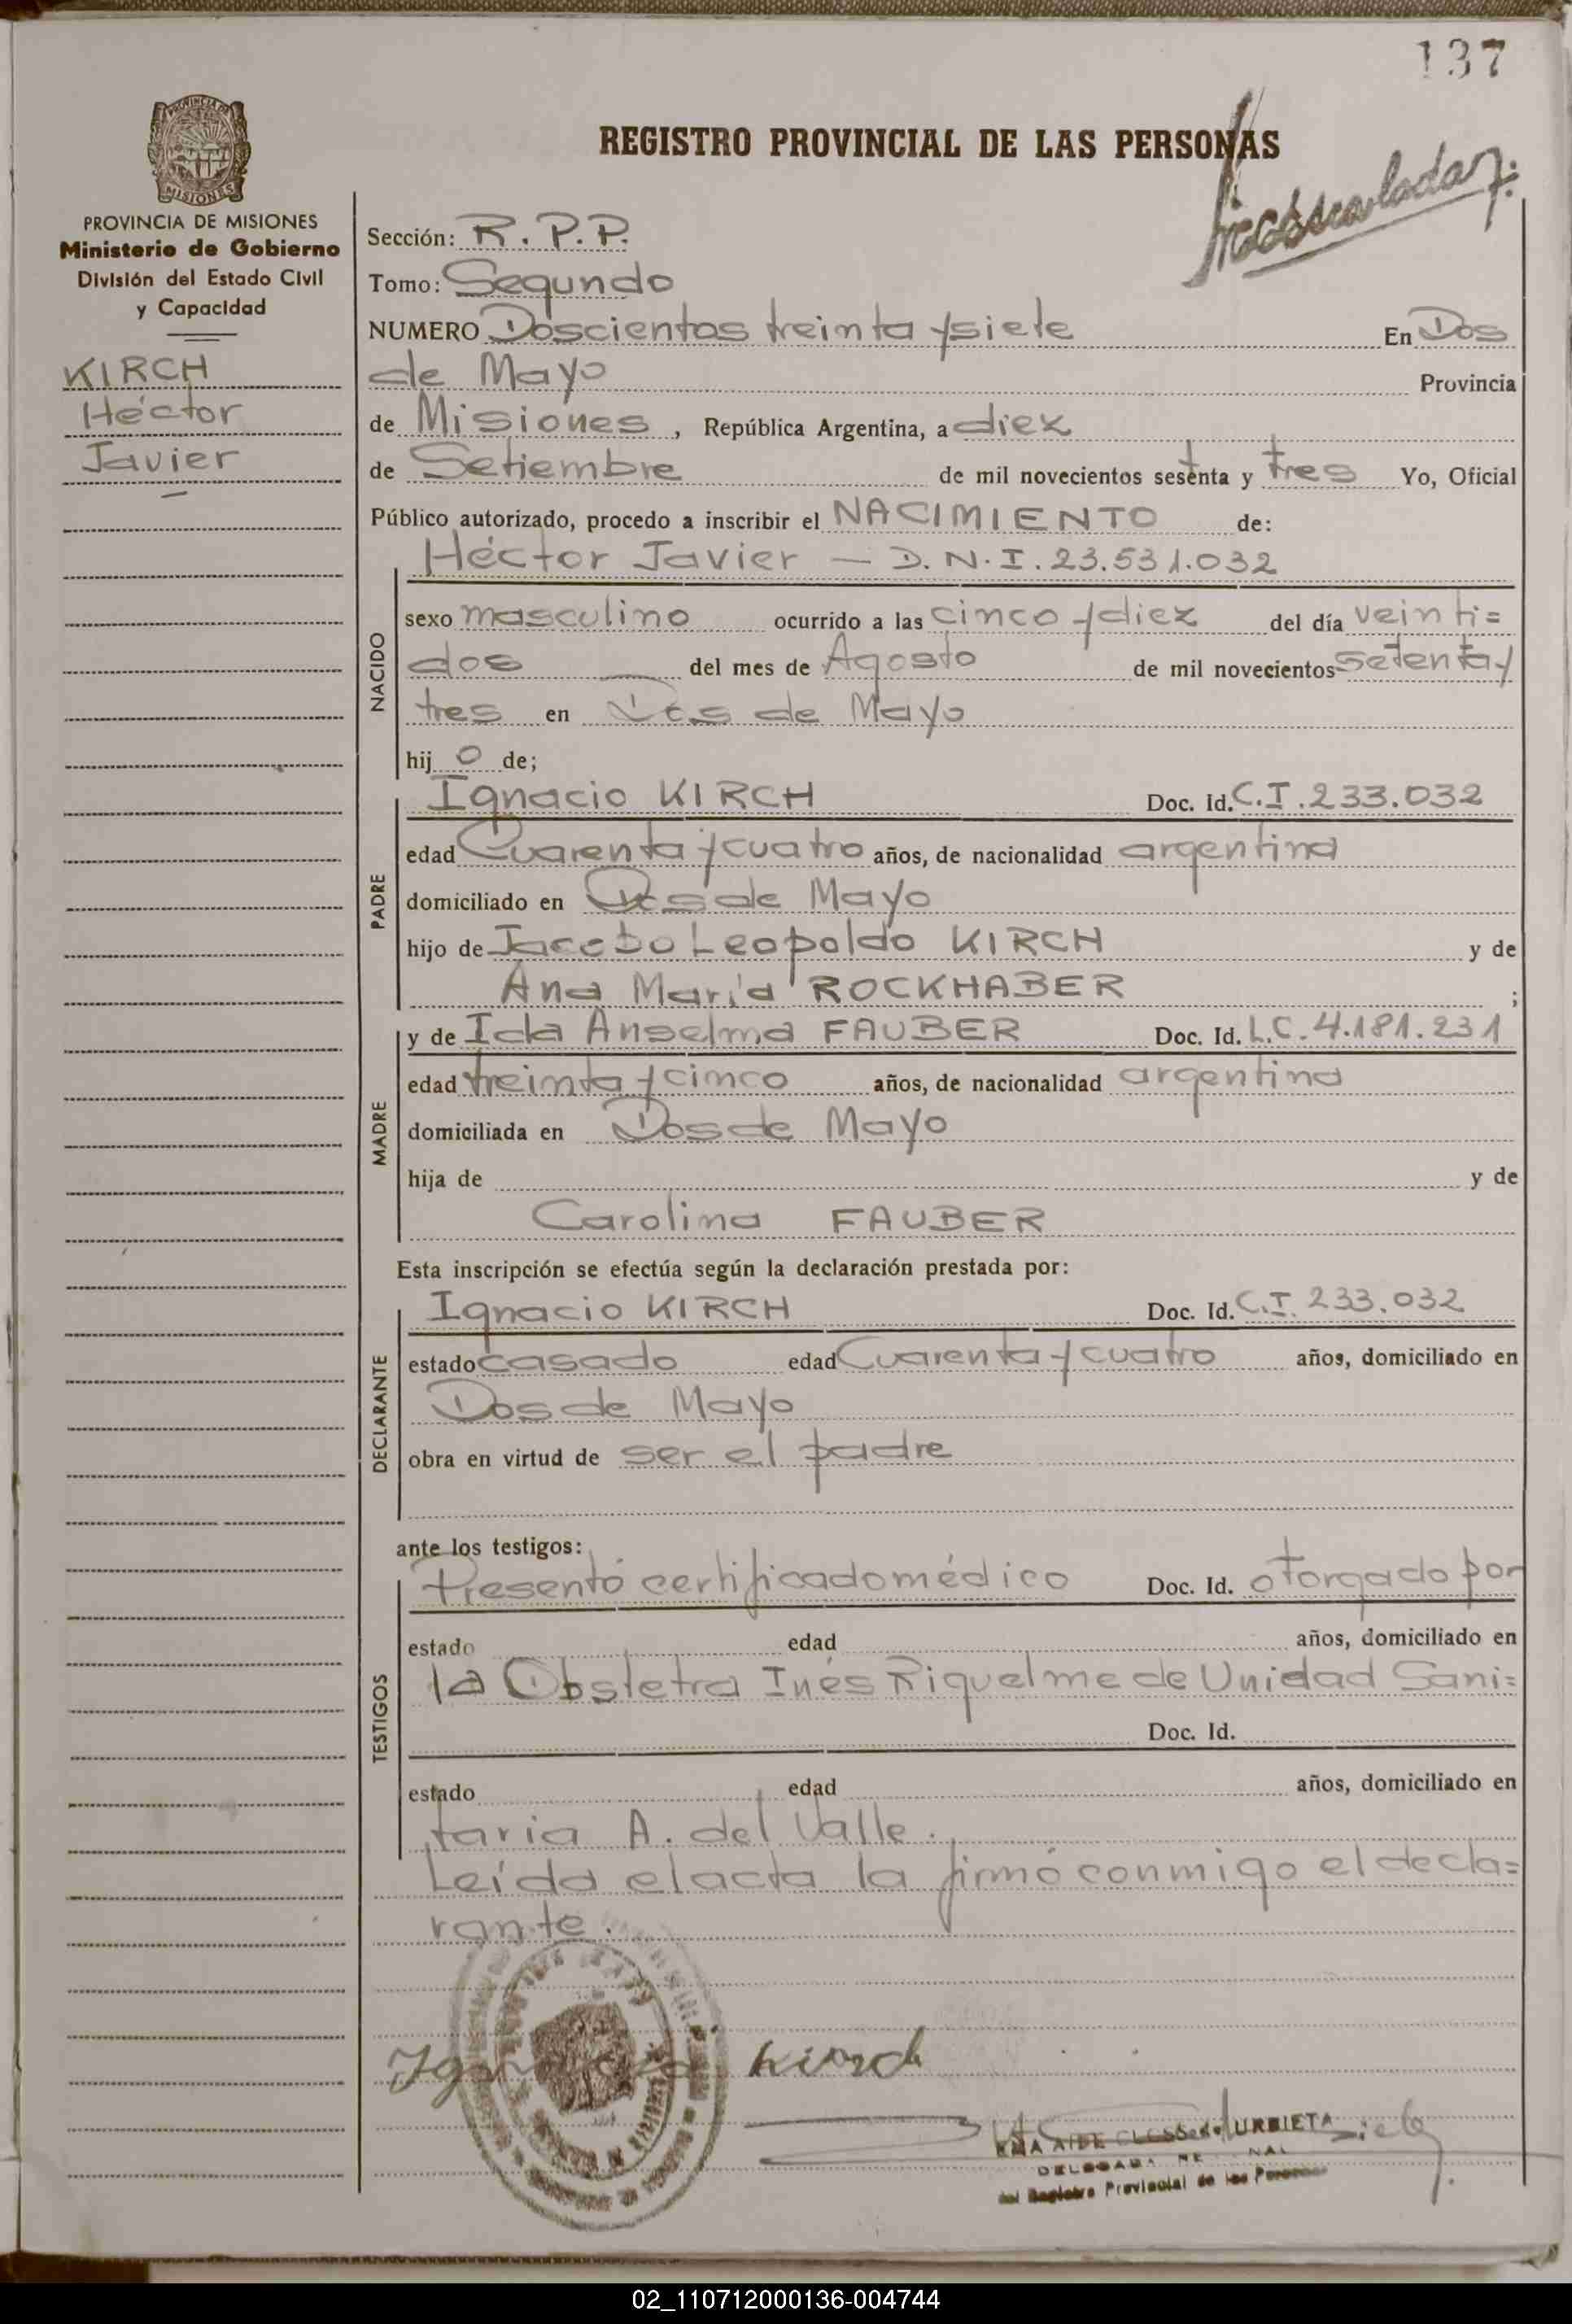 137
REGISTRO PROVINCIAL DE LAS PERSONAS
PROVINCIA DE MISIONES
Ministerio de Gobierno
División del Estado Civil
y Capacidad
KIRCH
Héctor
Javier
Sección: R. P. P.
Tomo: Segundo
NUMERO Doscientos treinta y siete En Dos
de Mayo Provincia
de Misiones, República Argentina, a diez
de Setiembre de mil novecientos setenta y tres Yo, Oficial
Público autorizado, procedo a inscribir el NACIMIENTO de:
Héctor Javier — D. N. I. 23.531.032
NACIDO
sexo masculino ocurrido a las cinco y diez del día veinti=
dos del mes de Agosto de mil novecientos setenta y
tres en Dos de Mayo
hijo de;
PADRE
Ignacio KIRCH Doc. Id. C.I. 233.032
edad Cuarenta y cuatro años, de nacionalidad argentina
domiciliado en Dos de Mayo
hijo de Jacobo Leopoldo KIRCH y de
Ana María ROCKHABER ;
MADRE
y de Ida Anselma FAUBER Doc. Id. L.C. 4.181.231
edad treinta y cinco años, de nacionalidad argentina
domiciliada en Dos de Mayo
hija de y de
Carolina FAUBER
Esta inscripción se efectúa según la declaración prestada por:
DECLARANTE
Ignacio KIRCH Doc. Id. C.I. 233.032
estado casado edad Cuarenta y cuatro años, domiciliado en
Dos de Mayo
obra en virtud de ser el padre
ante los testigos:
TESTIGOS
Presentó certificado médico Doc. Id. otorgado por
estado edad años, domiciliado en
la Obstetra Inés Riquelme de Unidad Sani=
Doc. Id.
estado edad años, domiciliado en
taria A. del Valle.
Leída el acta la firmó conmigo el decla=
rante.
Ignacio Kirch
URBIETA
DELEGADA
del Registro Provincial de las Personas
02_110712000136-004744